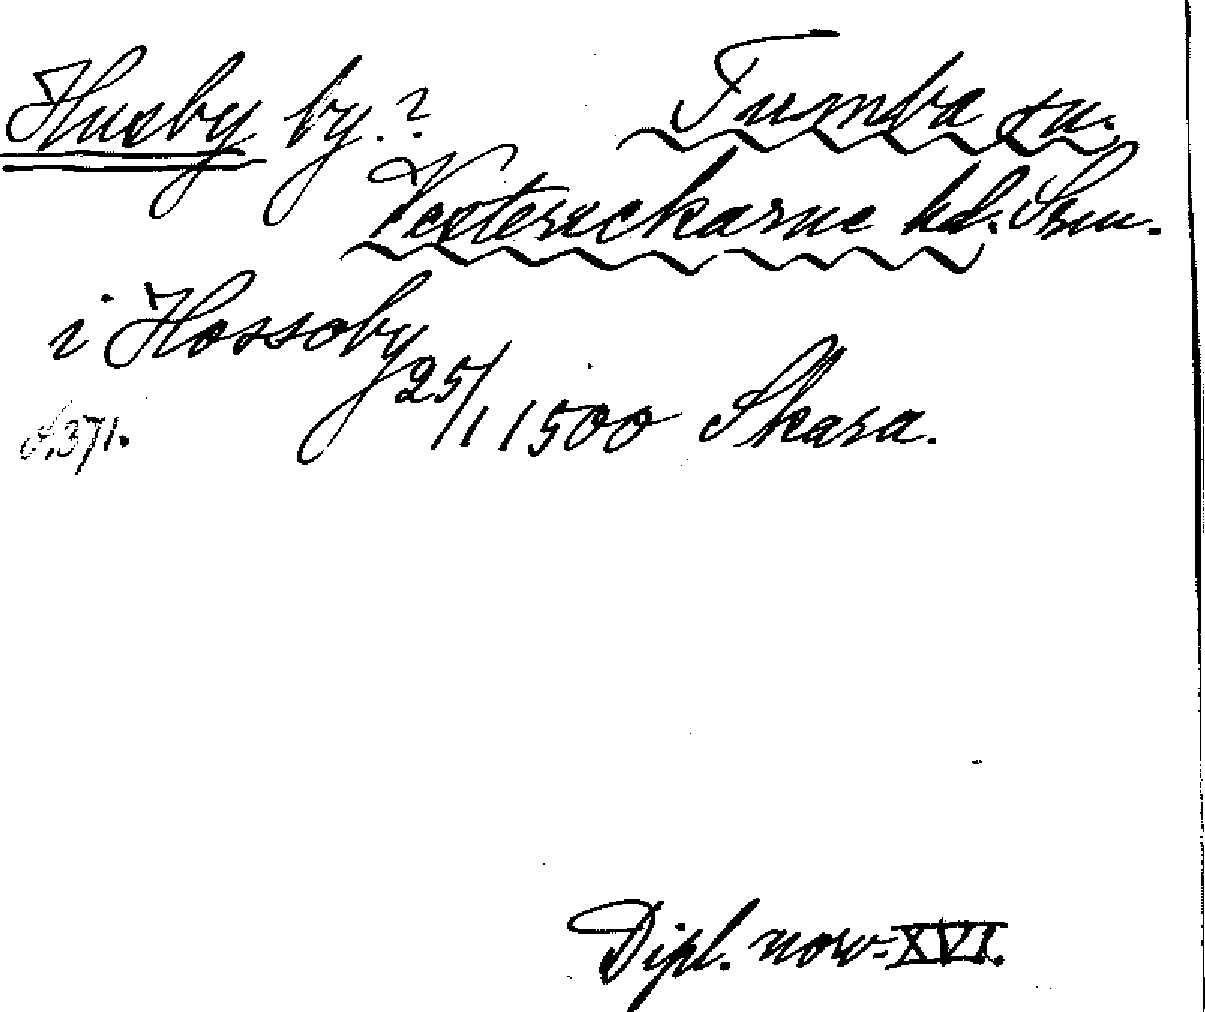 Husby by.? Tumba sn.
Vesterrekarne hd. Srm.
i Hossoby 25/1 1500 Skara.
S. 371.
Dipl. norv. XVI.